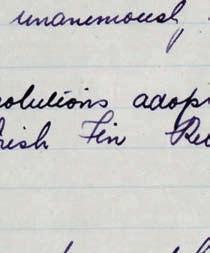 unanimously
olutions adop
rish Fin Re